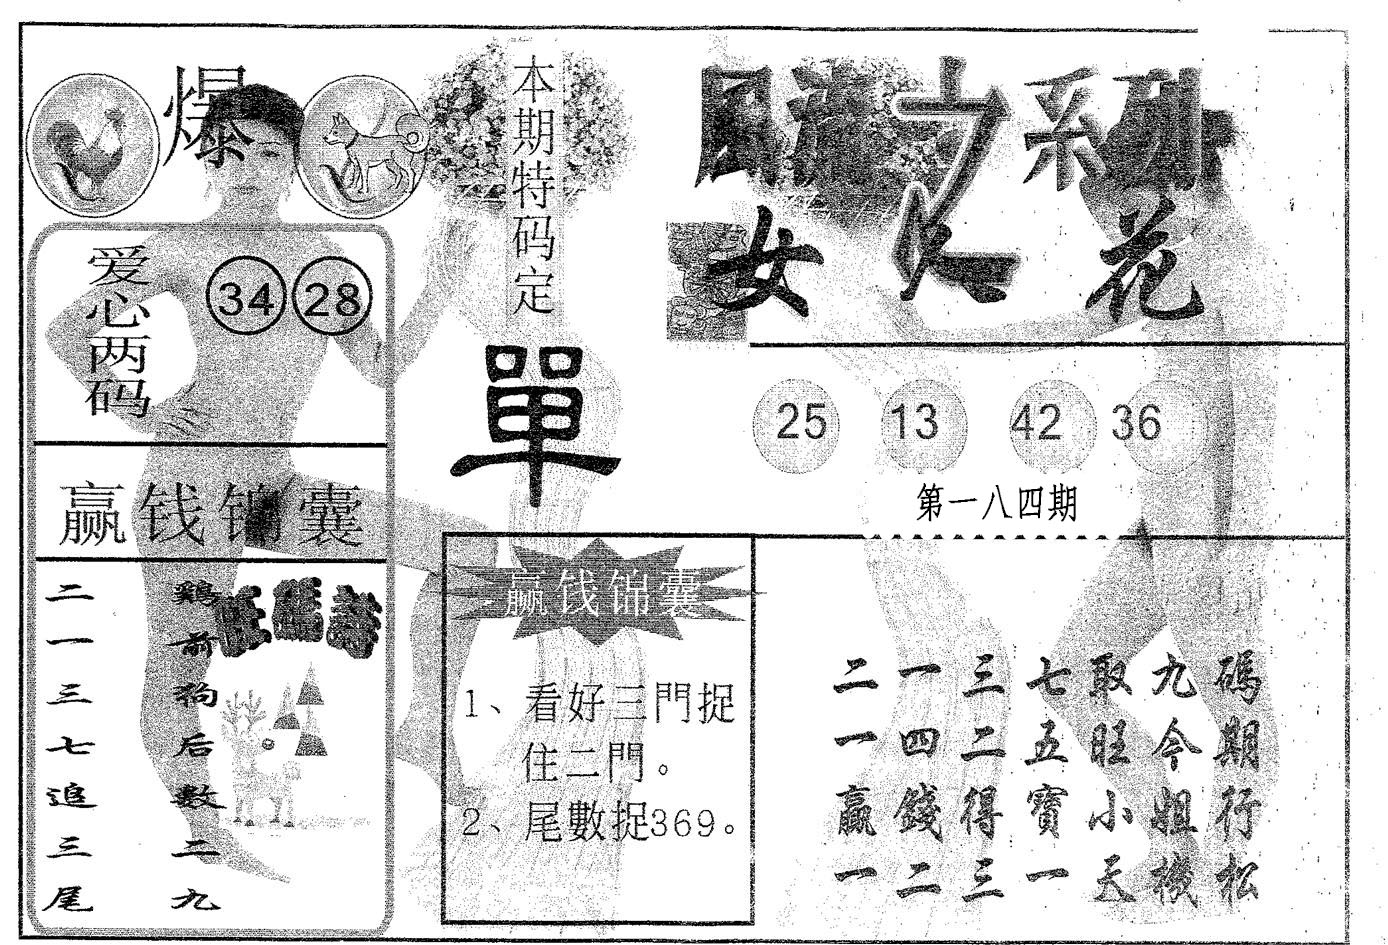 爆
本期特码定
單
风流之系列
女人花
爱心两码
34 28
25 13 42 36
第一八四期
赢钱锦囊
鷄前狗后數二九
二一三七追三尾
赢钱锦囊
1、看好三門捉
住二門。
2、尾數捉369。
二一三七取九碼
一四二五旺今期
贏錢得寶小姐行
一二三一天機松